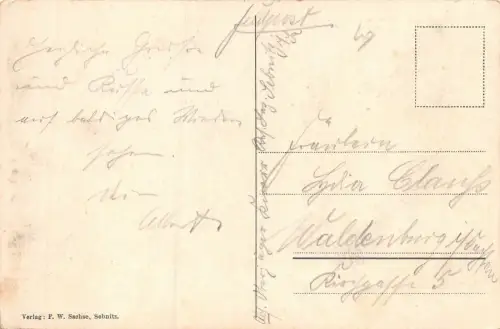 Feldpost
Herzliche Grüße
und Küsse und
auf baldiges Wieder-
sehen
Albert
Fräulein
Lydia Clauß
Waldenburg i/Sachsen
Kirchgasse 5
Verlag: F. W. Sachse, Sebnitz.